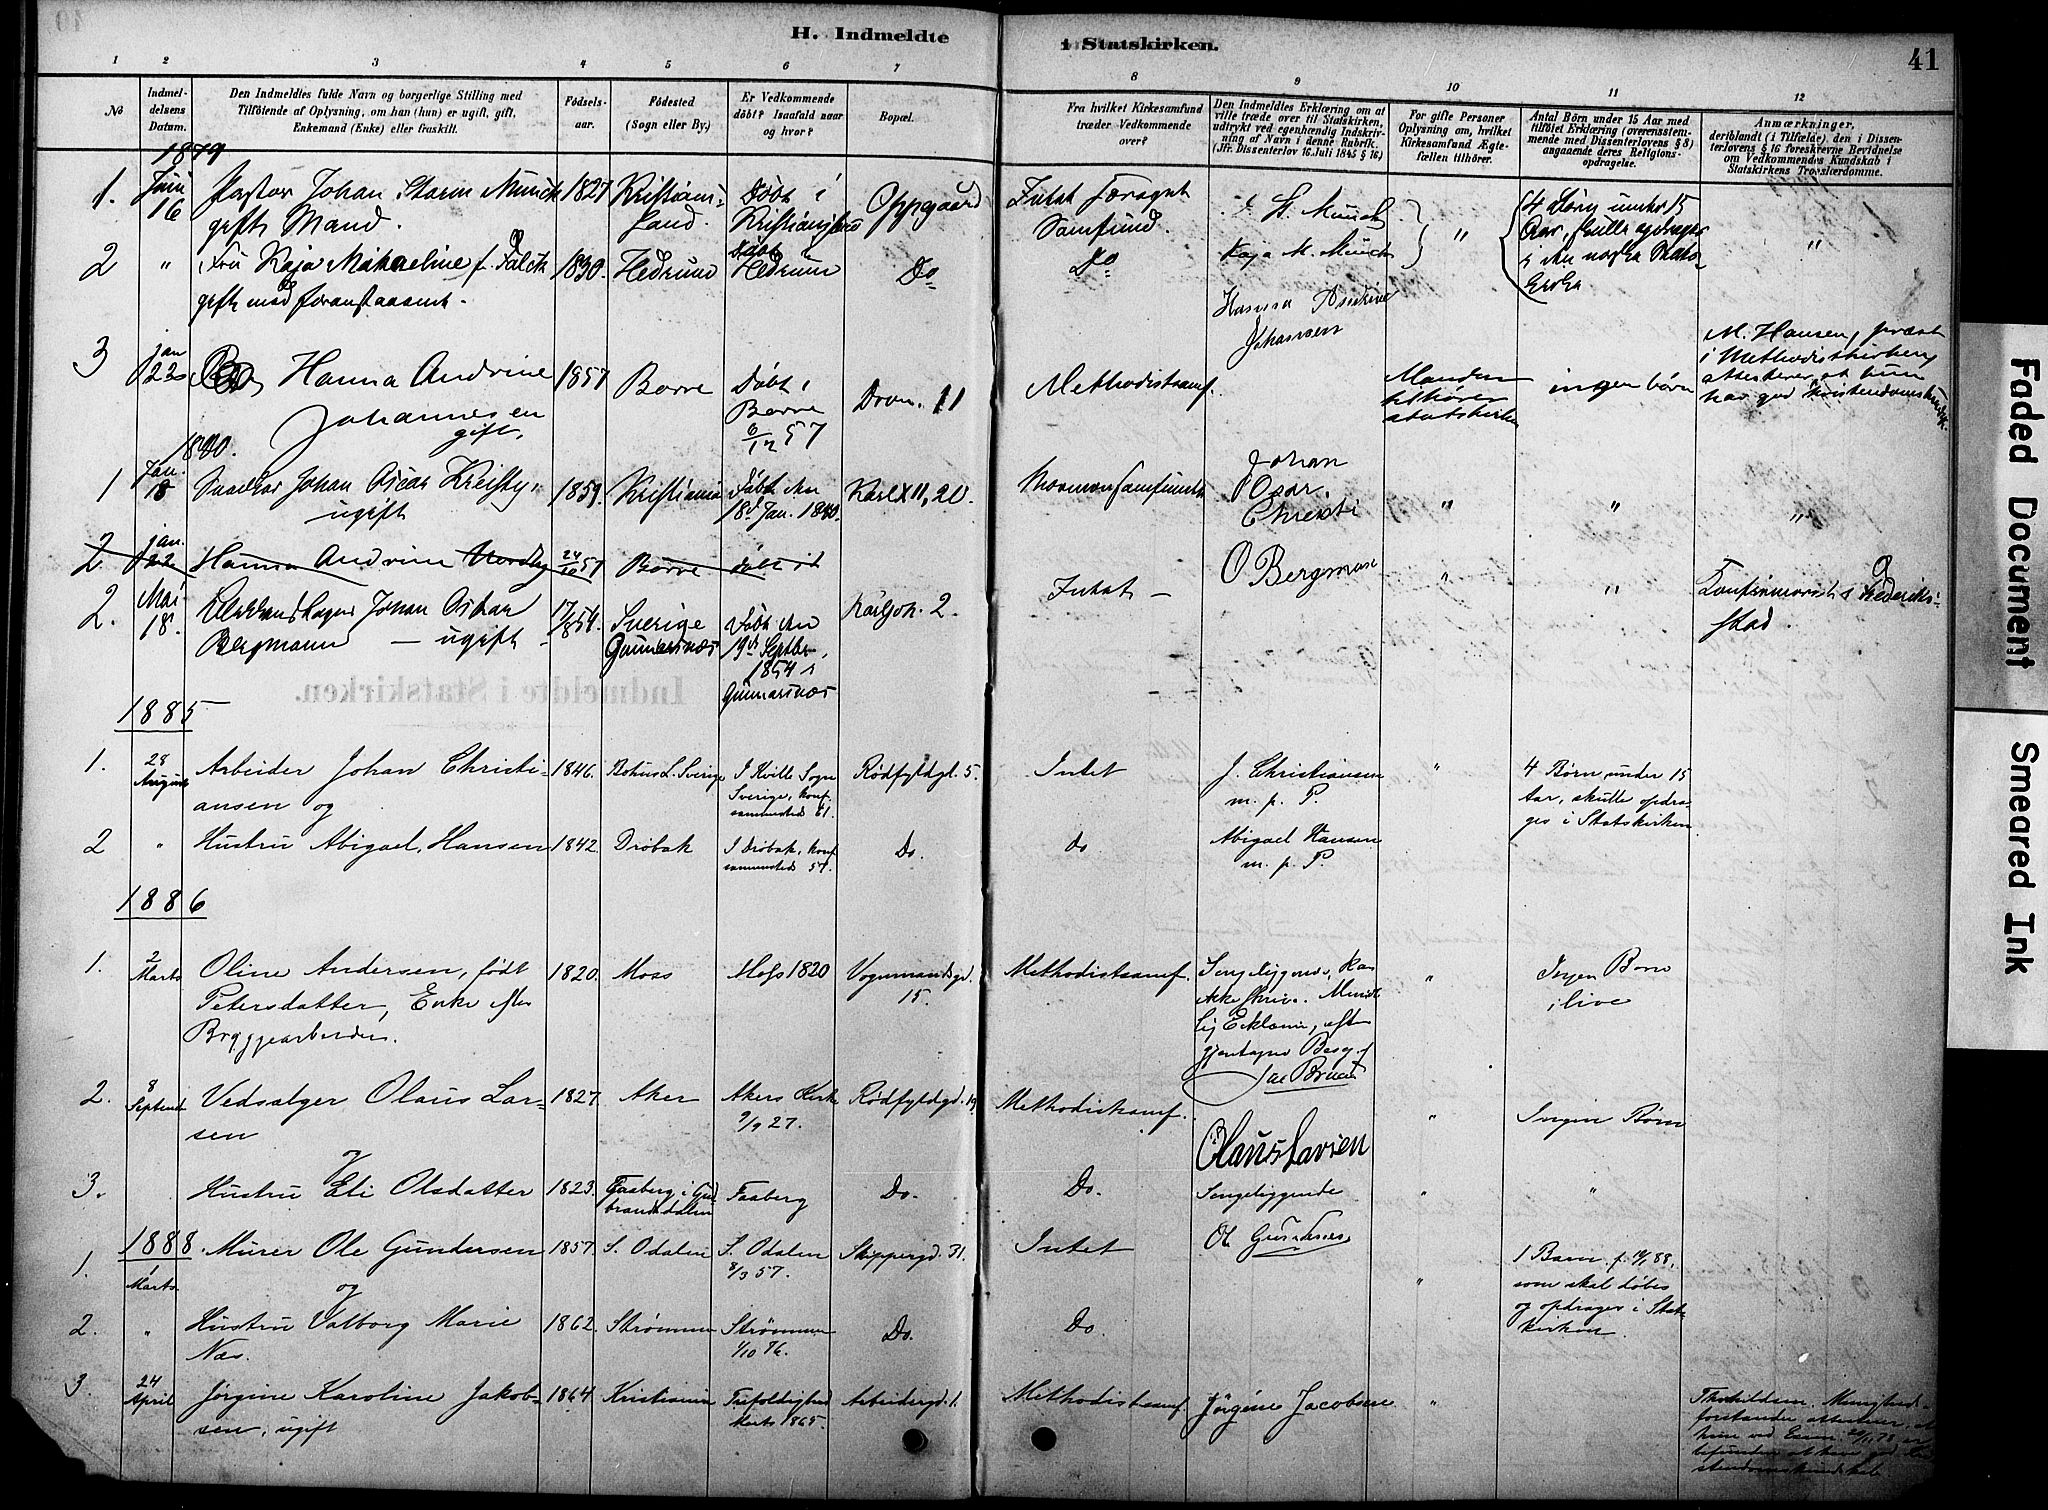 H. Indmeldte i Statskirken.
41
1 2 3 4 5 6 7 8 9 10 11 12
No
Indmeldelsens Datum.
Den Indmeldtes fulde Navn og borgerlige Stilling med
Tilföiende af Oplysning, om han (hun) er ugift, gift,
Enkemand (Enke) eller fraskilt.
Födselsaar.
Födested
(Sogn eller By.)
Er Vedkommende
döbt? Isaafald naar
og hvor?
Bopæl.
Fra hvilket Kirkesamfund
træder Vedkommende
over?
Den Indmeldtes Erklæring om at
ville træde over til Statskirken,
udtrykt ved egenhændig Indskrivning
af Navn i denne Rubrik.
(Jfr. Dissenterlov 16 Juli 1845 § 16.)
For gifte Personer
Oplysning om, hvilket
Kirkesamfund Ægtefællen
tilhörer.
Antal Börn under 15 Aar med
tilföiet Erklæring (overensstemmende
med Dissenterlovens § 8)
angaaende deres Religionsopdragelse.
Anmærkninger,
deriblandt (i Tilfælde), den i Dissenterlovens
§ 16 foreskrevne Bevidnelse
om Vedkommendes Kundskab i
Statskirkens Troeslærdomme.
1879
1. Juni 16 Pastor Johan Storm Munch 1827 Kristiansand. Döbt i Oppegaard Intet
gift Mand. Samfund. J. St. Munch 4 Börn under 15
Aar, skulle opdrages
i den norske Statskirke
2 " Fru Kaja Mikaeline f. Falck 1830. Hedrum Döbt Hedrum Do Do Kaja M. Munch
gift med foranstaaende.
Hanna Andrine
Johansen
3 jan 23 Hanna Andrine 1857 Borre Döbt i Borre 6/12 57 Dron. 11 Methodistsamf. Manden tilhører statskirken ingen børn M. Hansen, præst
i Methodistkirken,
attesterer at hun
har god kristendomskundsk.
Johannesen
gift,
1880.
1 Jan. 18 Johan Oscar 1859. Kristiania Döbt den 18de Jan. 1880. Karl XII, 20. Mormonsamfundet Johan
Oscar
ugift " " "
2 jan. 22 Hanna Andrine Nordby 24/10 57 Borre döbt
2. Mai 18. Johan Oskar 17/8 54. Sverige Gunnarsnæs Döbt den 19de Septbr. 1854 i Gunnarsnæs Karl Joh. 2. Intet O Bergman " " Konfirmeret i Frederiksstad.
Bergmann – ugift
1885
1. 28 August Arbeider Johan Christiansen og 1846. Bohus L. Sverige I Kville Sogn Sverige, konf. sammested 61. Rødfyldgt. 5. Intet J. Christiansen m. p. P. " 4 Børn under 15 Aar, skulle opdrages i Statskirken
2 " Hustru Abigael Hansen 1842. Drøbak I Drøbak, konf. sammested 57. Do. do Abigael Hansen m. p. P.
1886
1. 2 Marts Oline Andersen, født 1820. Moss Moss 1820 Vognmandsgd. 15. Methodistsamf. Sengeliggende, kan
Petersdatter, Enke efter ikke skrive. Mundtlig
Bryggearbeider. Erklæring, efter
gjentagne Besøg af
" Ingen Børn
i live
2. 8 Septemb Vedsælger Olaus Larsen 1827. Aker Akers Kirke 9/9 27. Rødfyldgd. 19 Methodistsamf. Olaus Larsen " Ingen Børn
og
3. Hustru Eli Olsdatter 1823. Faaberg i Gudbrandsdalen Faaberg Do. Do. Sengeliggende " "
1888.
1. 1 Marts. Murer Ole Gundersen 1857. S. Odalen S. Odalen 8/3 57. Skippergd. 31. Intet Ol Gundersen " 1 Barn f. 88,
som skal døbes
og opdrages i Statskirken.
og
2. " Hustru Valborg Marie 1862. Strømmen Strømmen 1/10 76. Do. Do.
Næs.
3. 24 April Jørgine Karoline Jakobsen, ugift 1864 Kristiania Trefoldighed Marts 1865. Arbeidergd. 1. Methodistsamf. Jørgine Jacobsen "
forstander
Faded Document
Smeared Ink